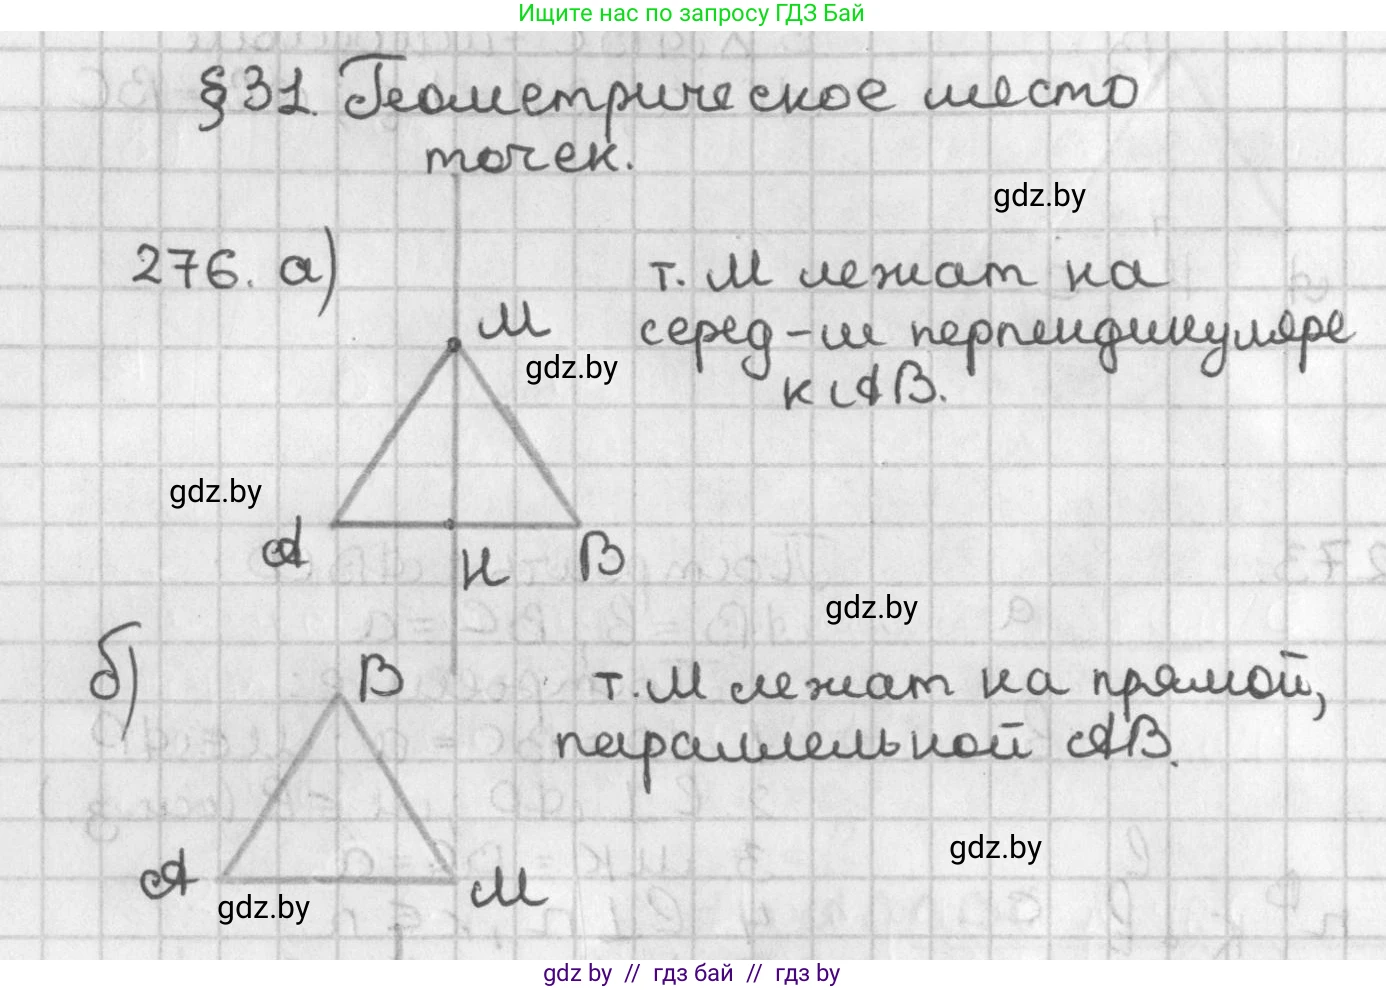 Ищите нас по запросу ГДЗ Бай
§31. Геометрическое место
точек.
gdz.by
276. а)
т. М лежат на
серед-м перпендикуляре
к АВ.
М
gdz.by
gdz.by
А
Н
В
gdz.by
б)
В
т. М лежат на прямой,
параллельной АВ.
gdz.by
А
М
gdz.by
gdz by // гдз бай // гдз by